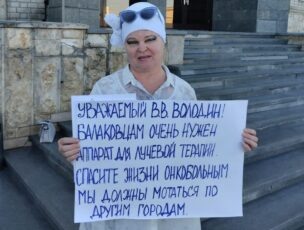 УВАЖАЕМЫЙ В.В. ВОЛОДИН!
БАЛАКОВЦАМ ОЧЕНЬ НУЖЕН
АППАРАТ ДЛЯ ЛУЧЕВОЙ ТЕРАПИИ.
СПАСИТЕ ЖИЗНИ ОНКОБОЛЬНЫМ
МЫ ДОЛЖНЫ МОТАТЬСЯ ПО
ДРУГИМ ГОРОДАМ.